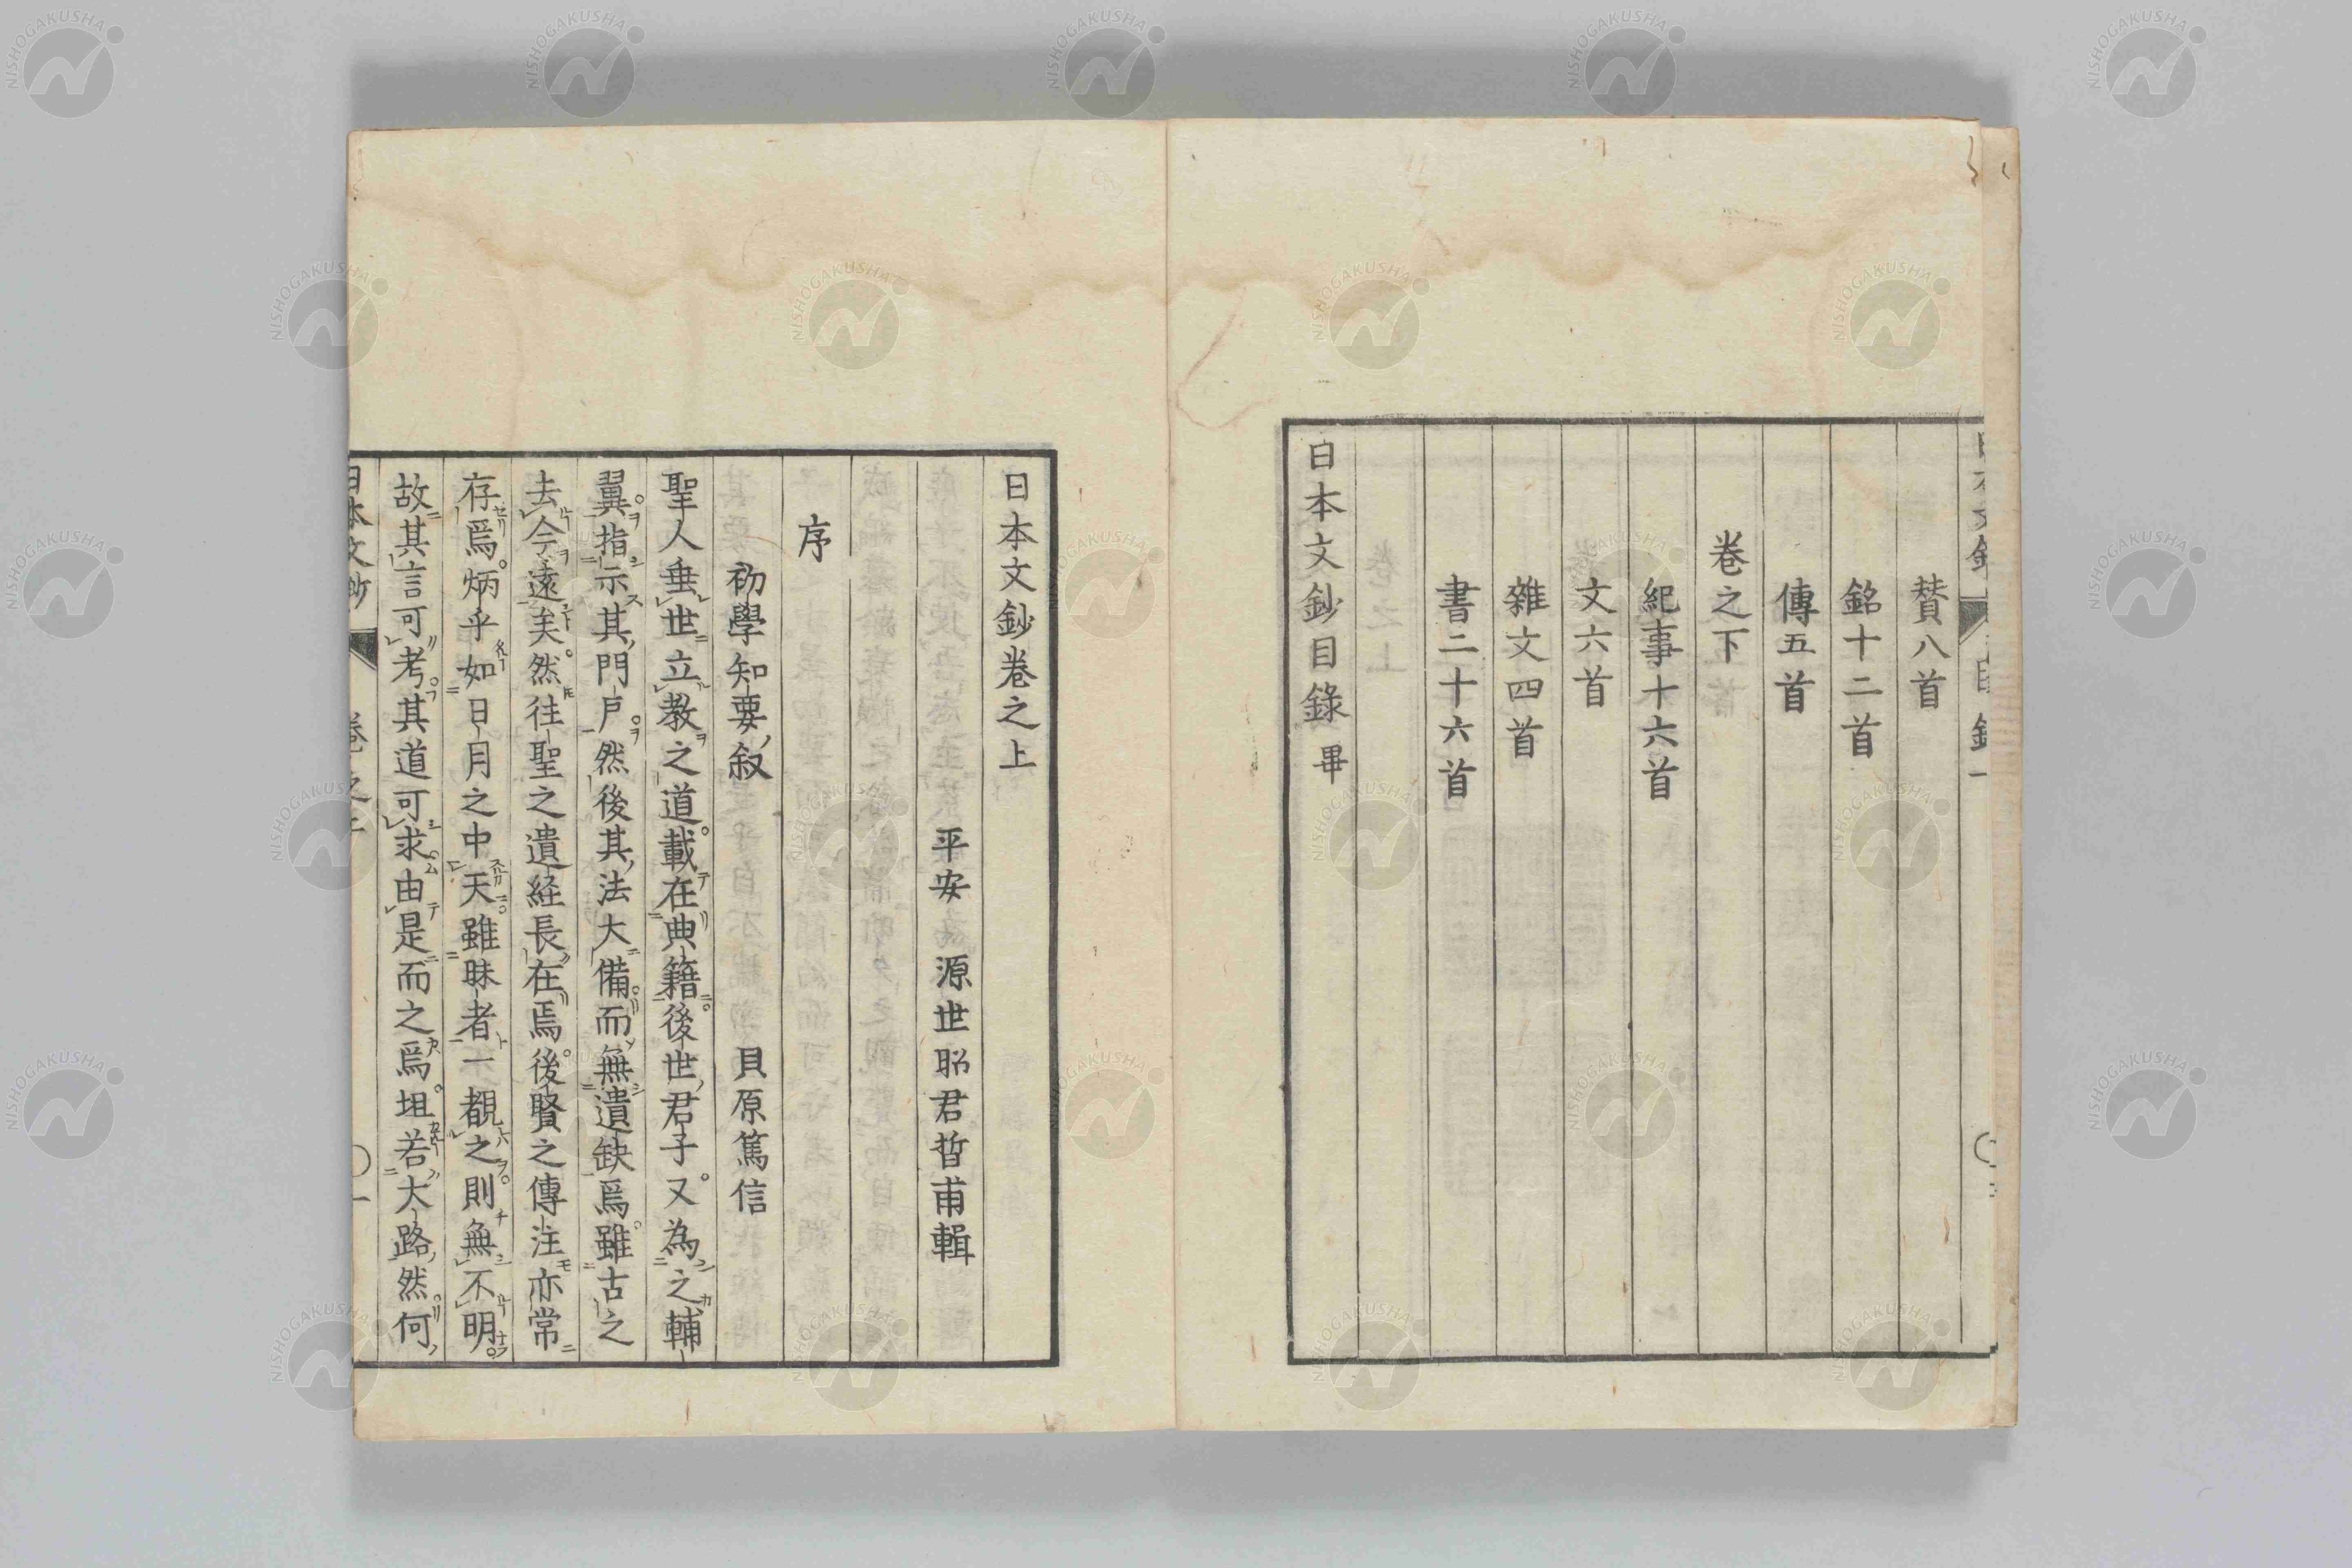 贊八首
銘十二首
傳五首
卷之下
紀事十六首
文六首
雜文四首
書二十六首
日本文鈔目錄畢
日本文鈔卷之上
平安 源世昭君晢甫輯
序
初學知要敘 貝原篤信
聖人垂世立教之道。載在典籍。後世君子。又為之輔
翼。指示其門戶。然後其法大備。而無遺缺焉。雖古之
去今遠矣。然往聖之遺経長在焉。後賢之傳注亦常
存焉。炳乎如日月之中天。雖昧者一覩之。則無不明。
故其言可考。其道可求。由是而之焉。坦若大路然。何
NISHOGAKUSHA